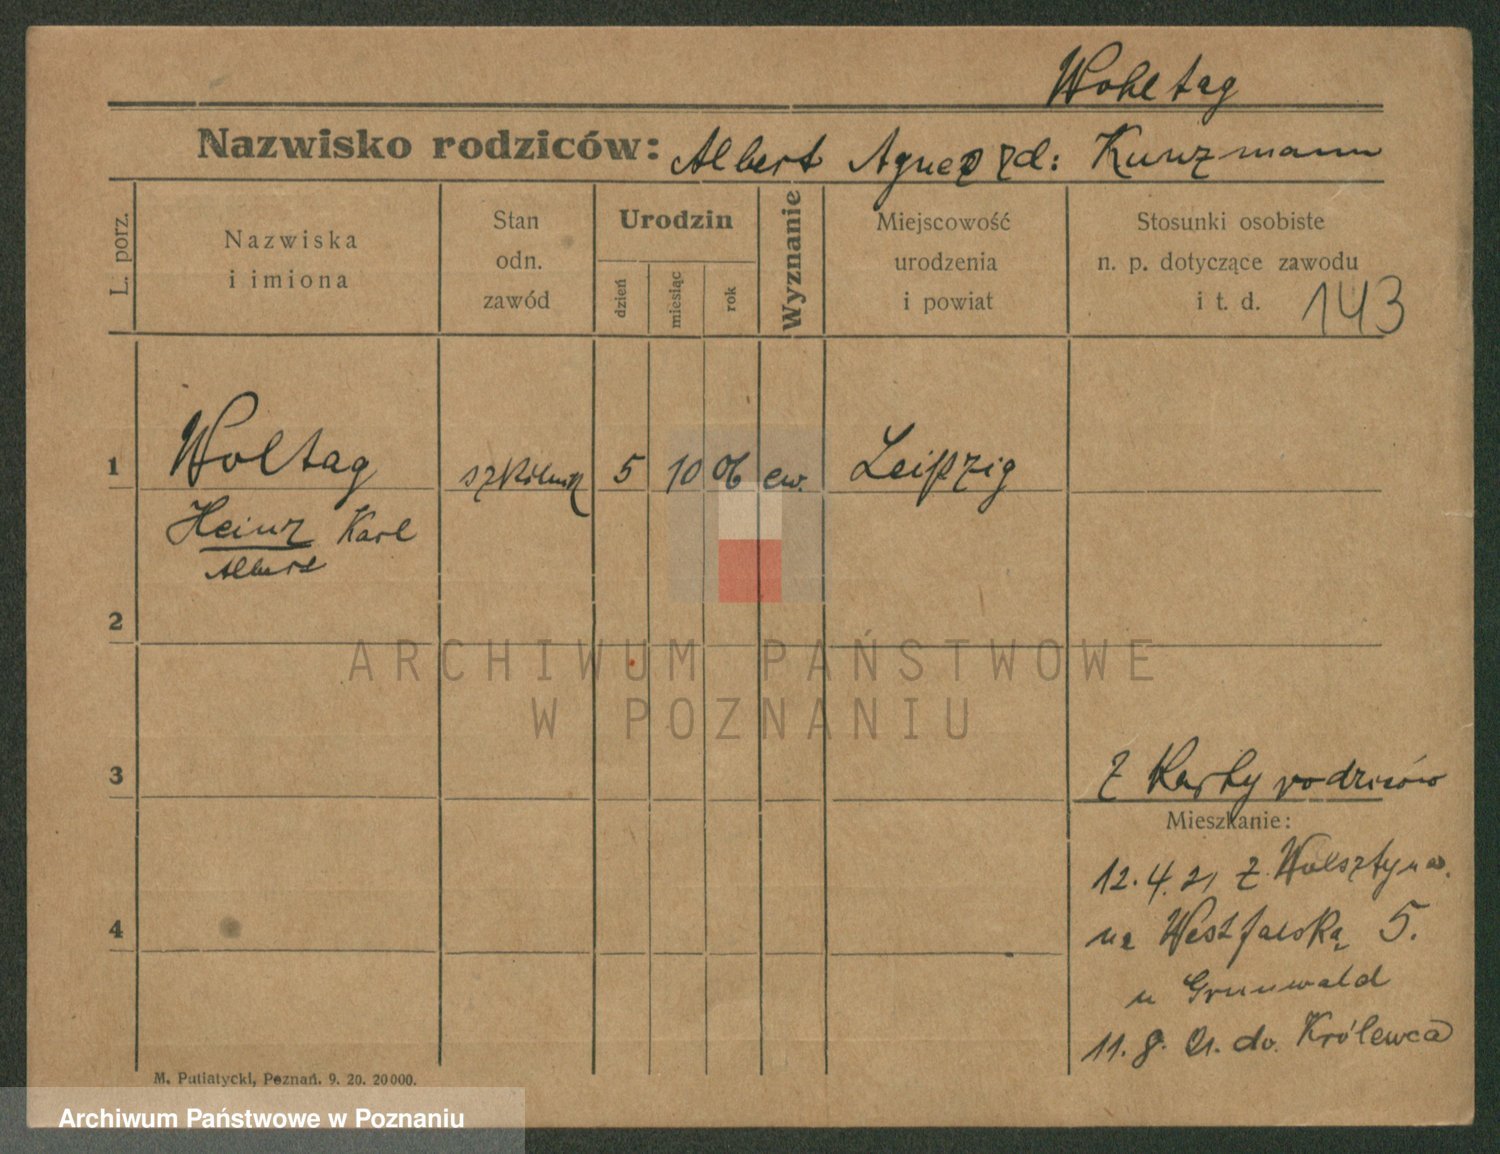 Wohltag
Nazwisko rodziców: Albert Agnes zd: Kunzmann
L. porz.
Nazwiska
i imiona
Stan
odn.
zawód
Urodzin
dzień
miesiąc
rok
Wyznanie
Miejscowość
urodzenia
i powiat
Stosunki osobiste
n. p. dotyczące zawodu
i t. d.
143
1 Woltag szkolnik 5 10 06 ew. Leipzig
Heinz Karl
Albert
2
3
Z Karty rodziców
Mieszkanie:
12.4.21 z Wolsztyna.
na Westfalską 5.
4
u Grunwald
11.8.21. do Królewca
M. Putiatycki, Poznań. 9. 20. 20000.
ARCHIWUM PAŃSTWOWE
W POZNANIU
Archiwum Państwowe w Poznaniu